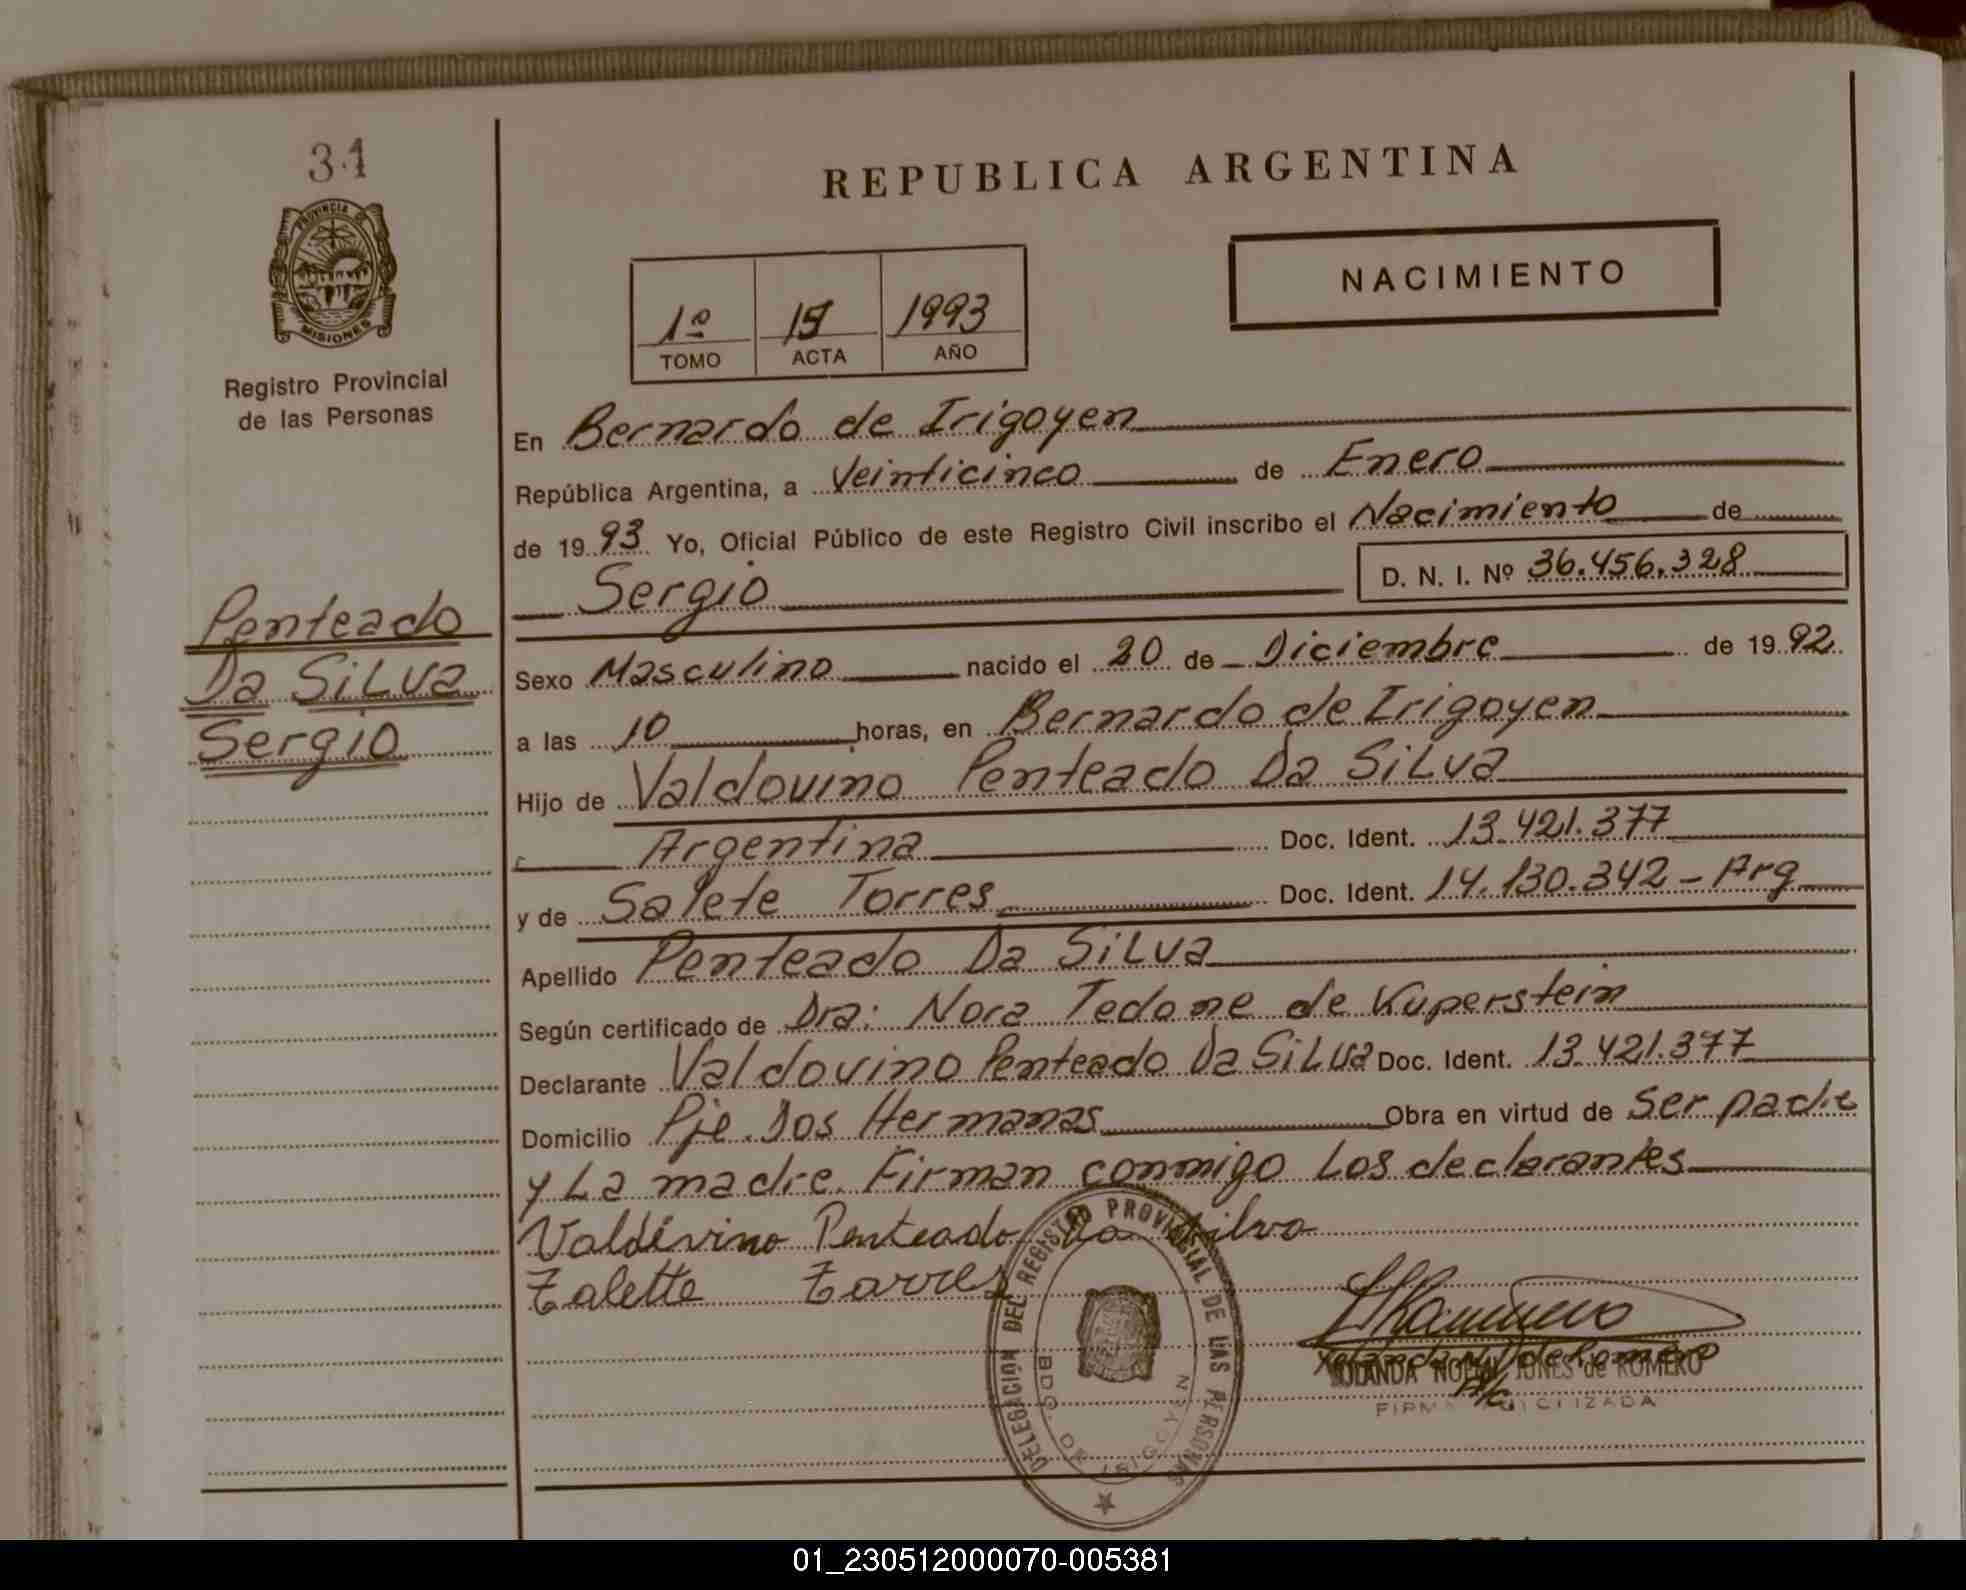 31
PROVINCIA DE
MISIONES
Registro Provincial
de las Personas
Penteado
Da Silva
Sergio
REPUBLICA ARGENTINA
NACIMIENTO
1º 1993
TOMO ACTA AÑO
En Bernardo de Irigoyen
República Argentina, a Veinticinco de Enero
de 1993 Yo, Oficial Público de este Registro Civil inscribo el Nacimiento de
Sergio D. N. I. Nº 36.456.328
Sexo Masculino nacido el 20 de Diciembre de 1992
a las 10 horas, en Bernardo de Irigoyen
Hijo de Valdovino Penteado Da Silva
Argentina Doc. Ident. 13.421.377
y de Salete Torres Doc. Ident. 14.130.342 - Arg
Apellido Penteado Da Silva
Según certificado de Dra: Nora Tedone de Kuperstein
Declarante Valdovino Penteado Da Silva Doc. Ident. 13.421.377
Domicilio Pje. Dos Hermanas Obra en virtud de Ser padre
y La madre. Firman conmigo Los declarantes
Valdivino Penteado da Silva
Zalette Torres
DELEGACION DEL REGISTRO PROVINCIAL DE LAS PERSONAS
BDO. DE IRIGOYEN
YOLANDA JONES de ROMERO
FIRMA
01_230512000070-005381